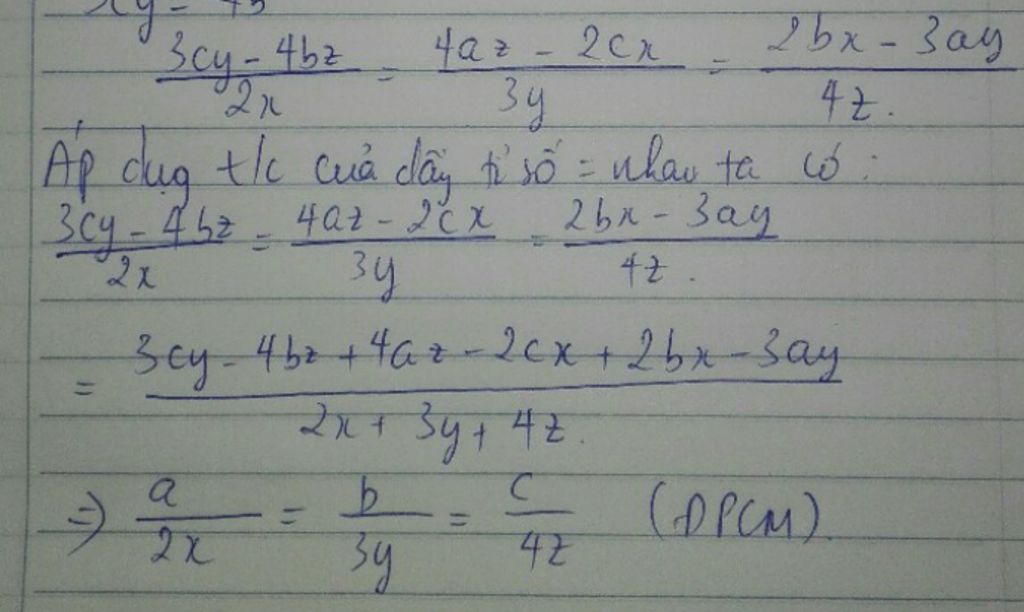 3cy - 4bz / 2x = 4az - 2cx / 3y = 2bx - 3ay / 4z.
Áp dụg t/c cuả dãy tỉ số = nhau ta có :
3cy - 4bz / 2x = 4az - 2cx / 3y = 2bx - 3ay / 4z.
= 3cy - 4bz + 4az - 2cx + 2bx - 3ay / 2x + 3y + 4z.
=> a / 2x = b / 3y = c / 4z (ĐPCM).